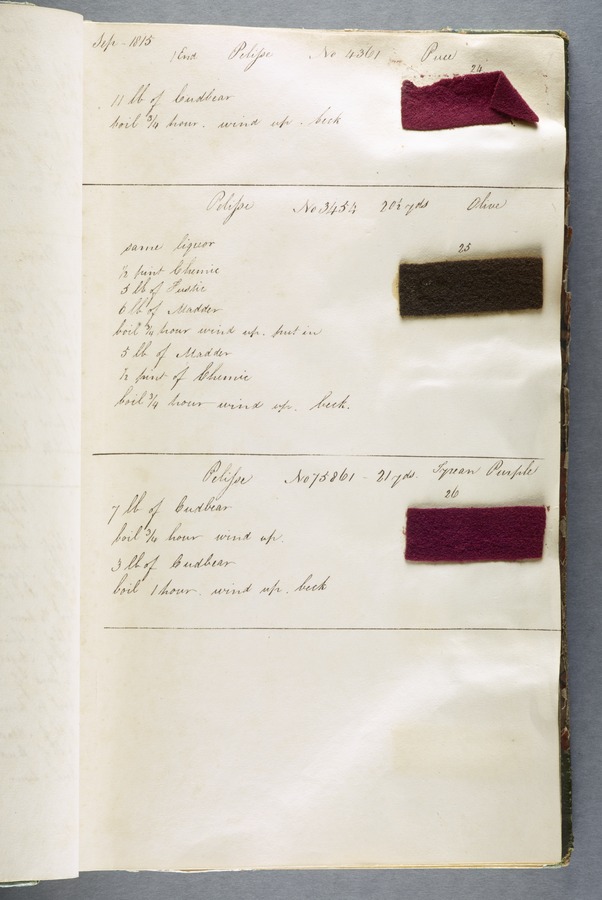 Sep - 1815
1 End Pelisse No 4361 Puce
24
11 lb of Cudbear
boil 3/4 hour. wind up. beck
Pelisse No 3454 20½ yds Olive
25
same liquor
½ pint Chemic
5 lb of Fustic
6 lb of Madder
boil 3/4 hour wind up. put in
5 lb of Madder
½ pint of Chemic
boil 3/4 hour wind up. beck.
Pelisse No 75861 - 21 yds. Tyrean Purple
26
7 lb of Cudbear
boil 3/4 hour wind up.
3 lb of Cudbear
boil 1 hour. wind up. beck